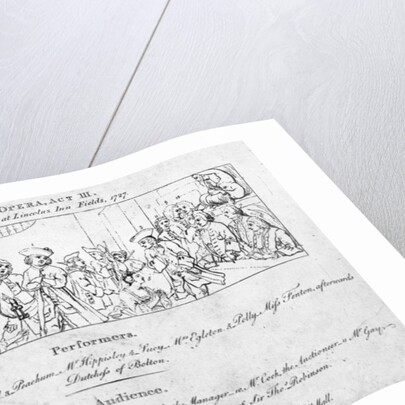 OPERA, ACT III.
at Lincolns Inn Fields, 1727.
Performers.
Peachum. Mr. Hippisley & Lucy. Mrs. Egleton & Polly. Miss Fenton, afterwards
Dutchess of Bolton.
Audience.
the Manager. Mr. Cock, the Auctioneer. Mr. Gay.
Sir Thos. Robinson.
Hall.